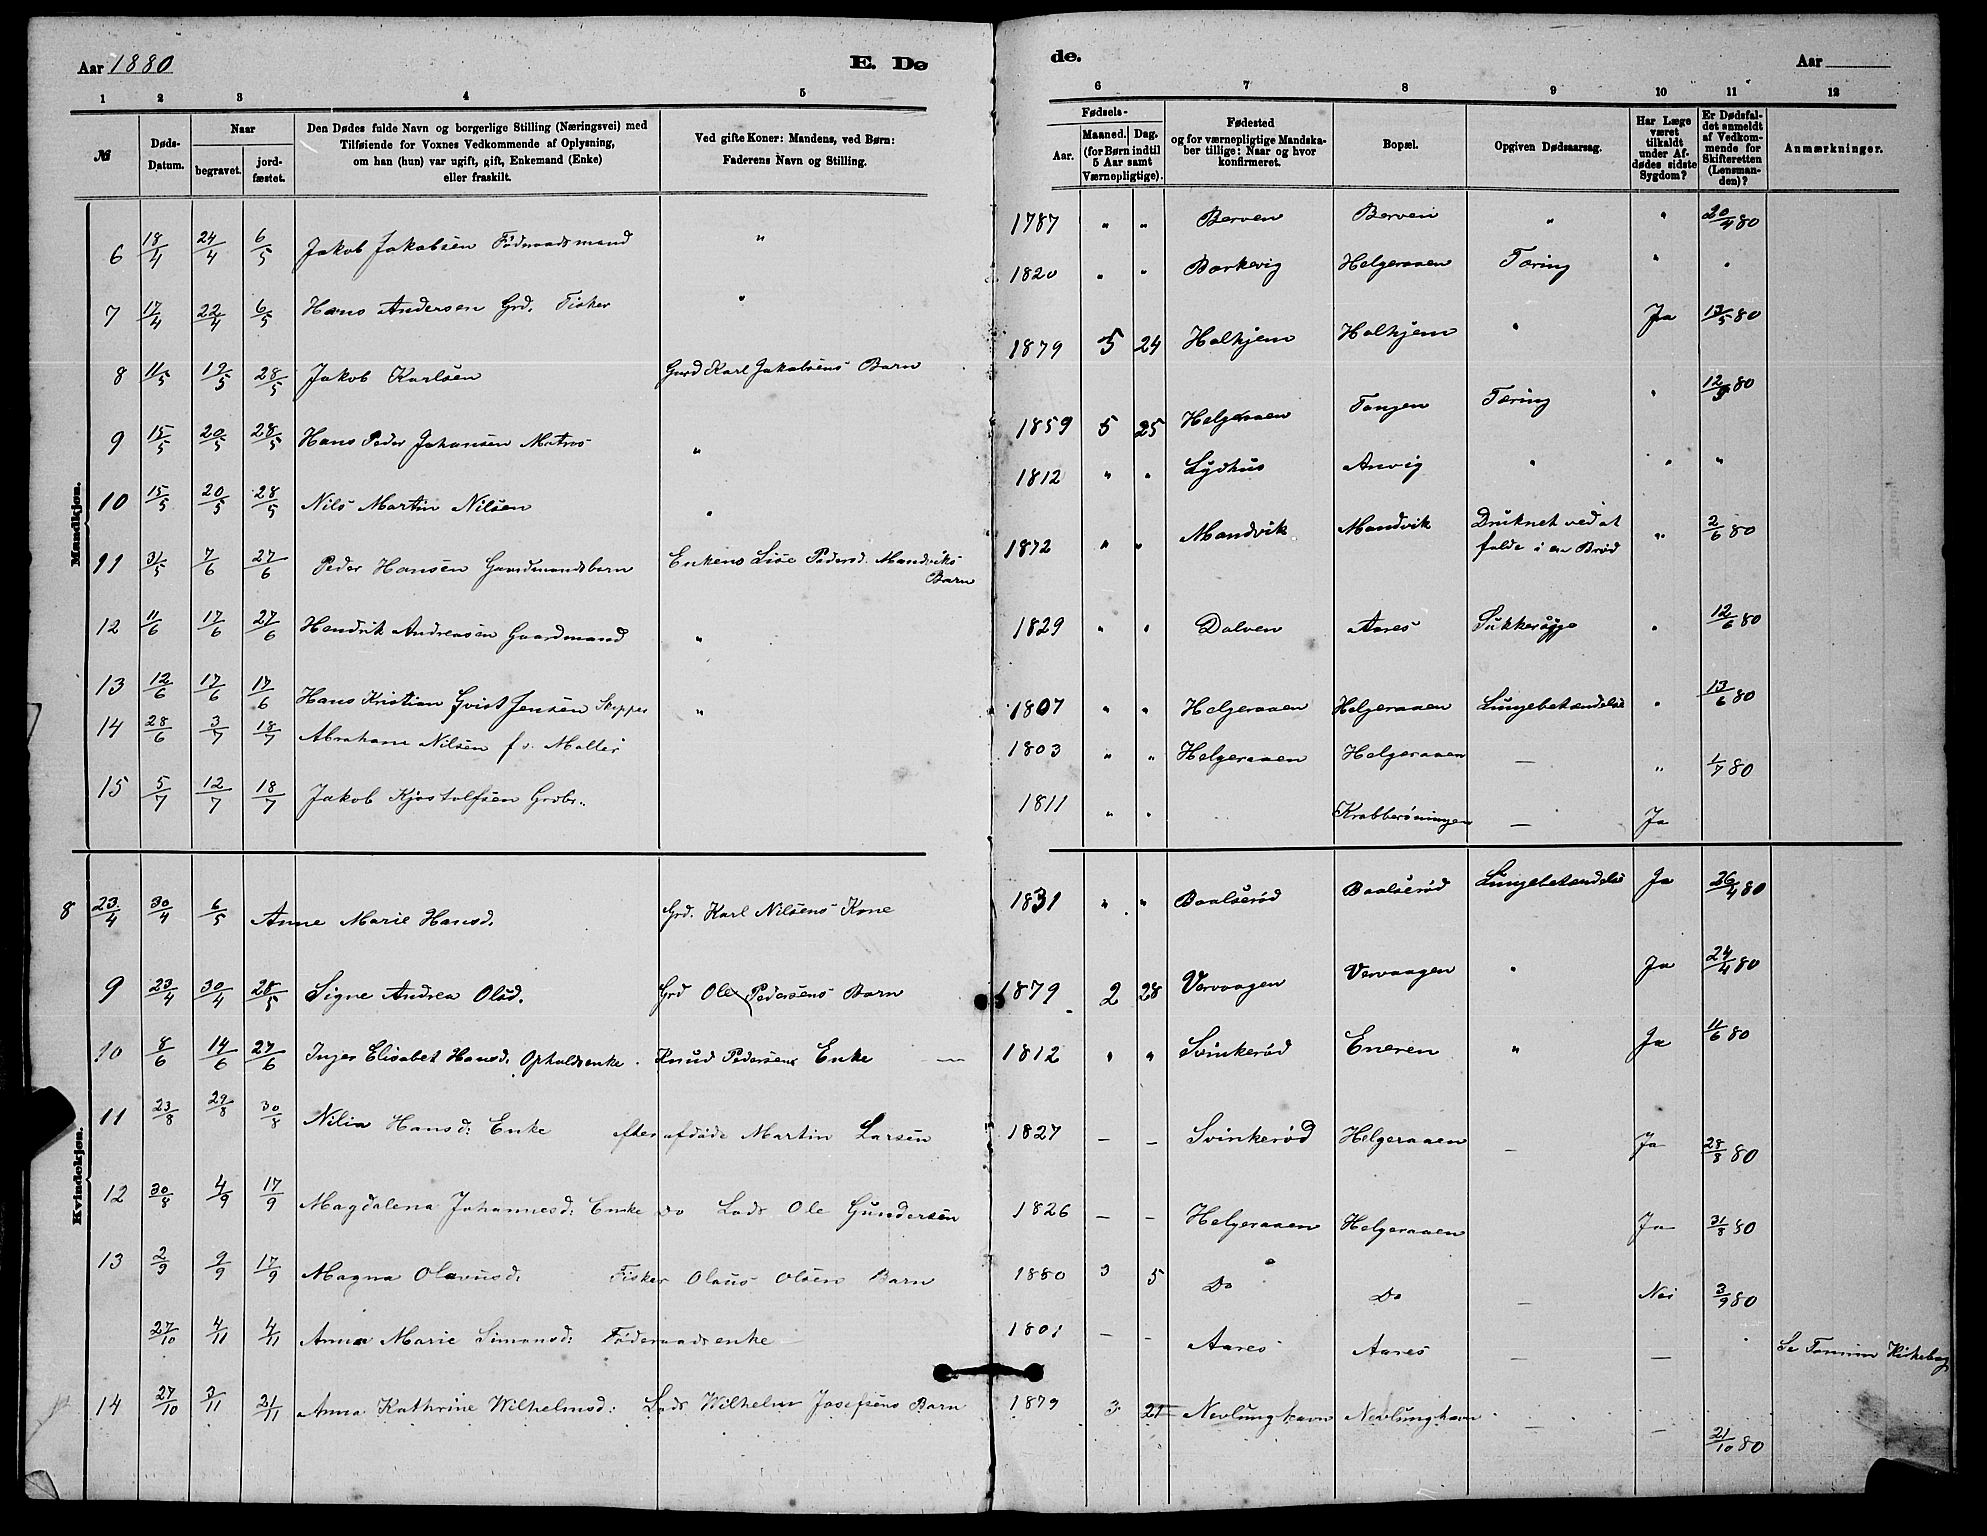 Aar 1880 E. Dø de. Aar
1 2 3 4 5 6 7 8 9 10 11 12
№
Døds-Datum.
Naar
begravet.
jordfæstet.
Den Dødes fulde Navn og borgerlige Stilling (Næringsvei) med
Tilføiende for Voxnes Vedkommende af Oplysning,
om han (hun) var ugift, gift, Enkemand (Enke)
eller fraskilt.
Ved gifte Koner: Mandens, ved Børn:
Faderens Navn og Stilling.
Fødsels-
Aar.
Maaned. Dag.
(for Børn indtil
5 Aar samt
Værnepligtige).
Fødested
og for værnepligtige Mandska-
ber tillige: Naar og hvor
konfirmeret.
Bopæl.
Opgiven Dødsaarsag.
Har Læge
været
tilkaldt
under Af-
dødes sidste
Sygdom?
Er Dødsfal-
det anmeldt
af Vedkom-
mende for
Skifteretten
(Lensman-
den)?
Anmærkninger.
Mandkjøn.
6 18/4 24/4 6/5 Jakob Jakobsen Føderaadsmand " 1787 " " Berven Berven " " 20/4 80
7 17/4 22/4 6/5 Hans Andersen Grd. Fisker " 1820 " " Barkevig Helgeraaen Tæring " "
8 11/5 19/5 28/5 Jakob Karlsen Gaard Karl Jakobsens Barn 1879 5 24 Holkjem Holkjem " Ja 13/5 80
9 15/5 20/5 28/5 Hans Peder Johansen Matros " 1859 5 25 Helgeraaen Tangen Tæring " 80
10 15/5 20/5 28/5 Nils Martin Nilsen " 1812 " " Lydhus Anvig " " "
11 31/5 7/6 27/6 Peder Hansen Gaardmandsbarn Enkens Lise Pedersd. Mandviks Barn 1872 " " Mandvik Mandvik Druknet ved at falde i en Brød " 2/6 80
12 11/6 17/6 27/6 Hendrik Andreasen Gaardmand " 1829 " " Dolven Aares Sukkersyge " 12/6 80
13 12/6 17/6 17/6 Hans Kristian Qvist Jensen Skipper " 1807 " " Helgeraaen Helgeraaen Lungebetændelse " 13/6 80
14 28/6 3/7 18/7 Abraham Nilsen f.v. 1803 " " Helgeraaen Helgeraaen — " 1/7 80
15 5/7 12/7 18/7 Jakob Kjøstolfsen Grdbr. 1811 " " Krabberøningen — Ja
Kvindekjøn.
8 23/4 30/4 6/5 Anne Marie Hansd. Grd. Karl Nilsens Kone 1831 " " Baalserød Baalserød Lungebetændelse Ja 26/4 80
9 23/4 30/4 28/5 Signe Andrea Olsd. Grd Ole Pedersens Barn 1879 2 28 Vervaagen Vervaagen " Ja 24/4 80
10 8/6 14/6 27/6 Inger Elisabet Hansd. Opholdsenke. Knud Pedersens Enke — 1812 " " Svinkerød Eneren " Ja 11/6 80
11 23/8 29/8 30/8 Nilia Hansd: Enke efter afdøde Martin Larsen 1827 — — Svinkerød Helgeraaen — Ja 28/8 80
12 30/8 4/9 17/9 Magdalena Johannesd: Enke do Lods Ole Gundersen 1826 — — Helgeraaen Helgeraaen Ja 31/8 80
13 2/9 9/9 17/9 Magna Olavusd. Fisker Olaus Olsens Barn 1880 3 5 Do Do — Nei 3/9 80
27/10 4/11 4/11 Anna Marie Simonsd: Føderaadsenke 1801 — — Aares Aares — — Se Tanum Kirkebog
14 27/10 3/11 21/11 Anna Kathrine Wilhelmsd: Lods Wilhelm Josefsens Barn 1879 3 21 Nevlunghavn Nevlunghavn — — 21/10 80